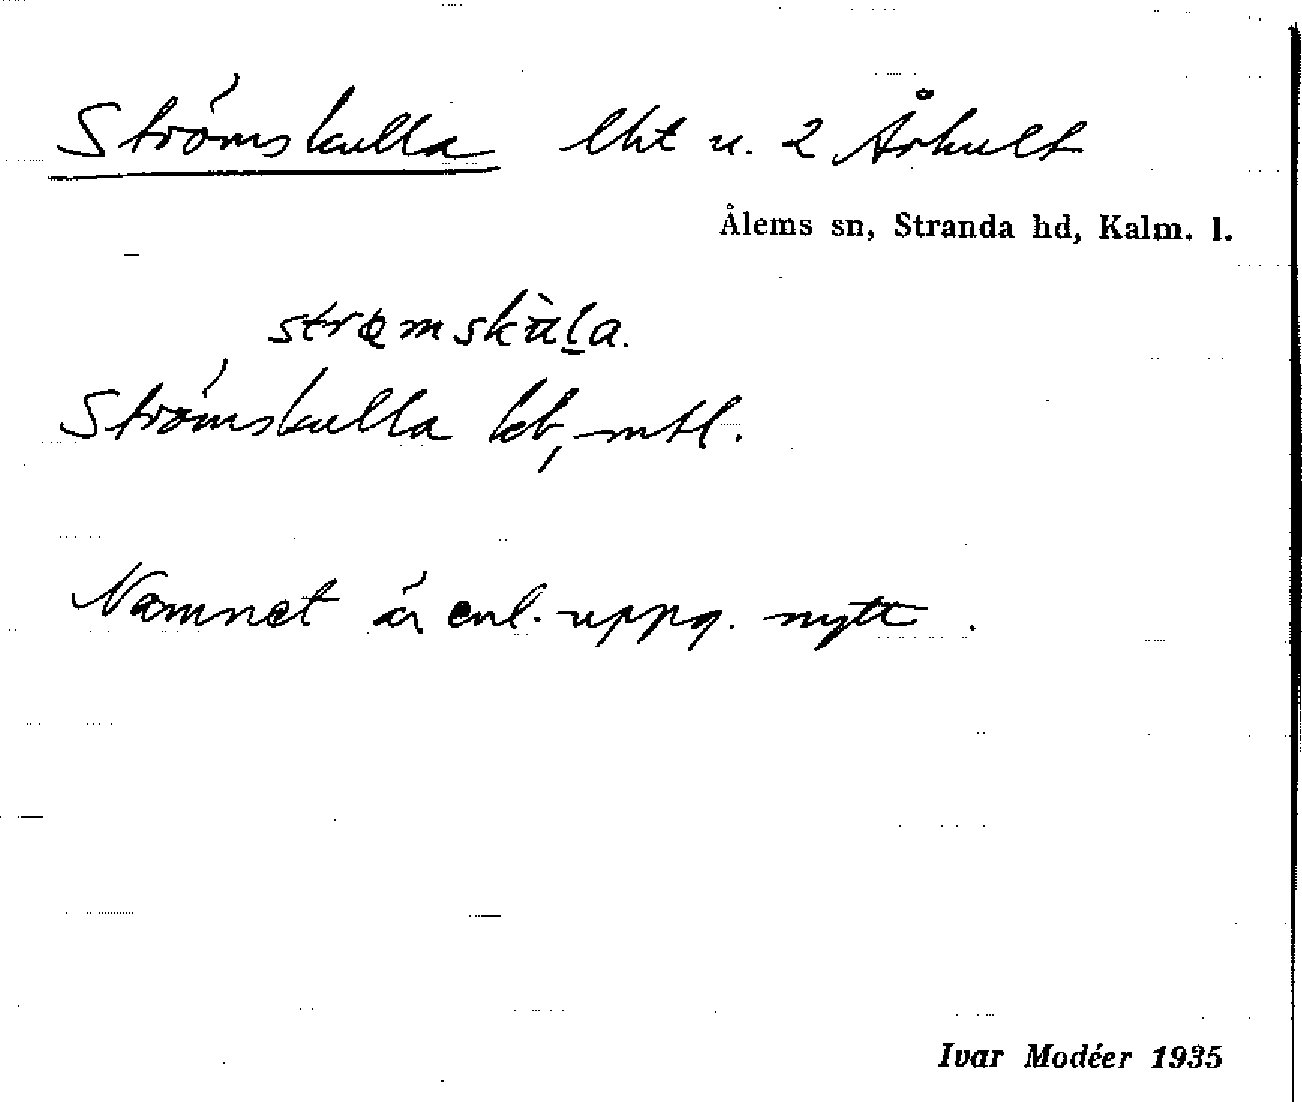 Strömskulla lht u. 2 Århult
Ålems sn, Stranda hd, Kalm. l.
Strömskulla kb, mtl.
Namnet är enl. uppg. nytt.
Ivar Modéer 1935